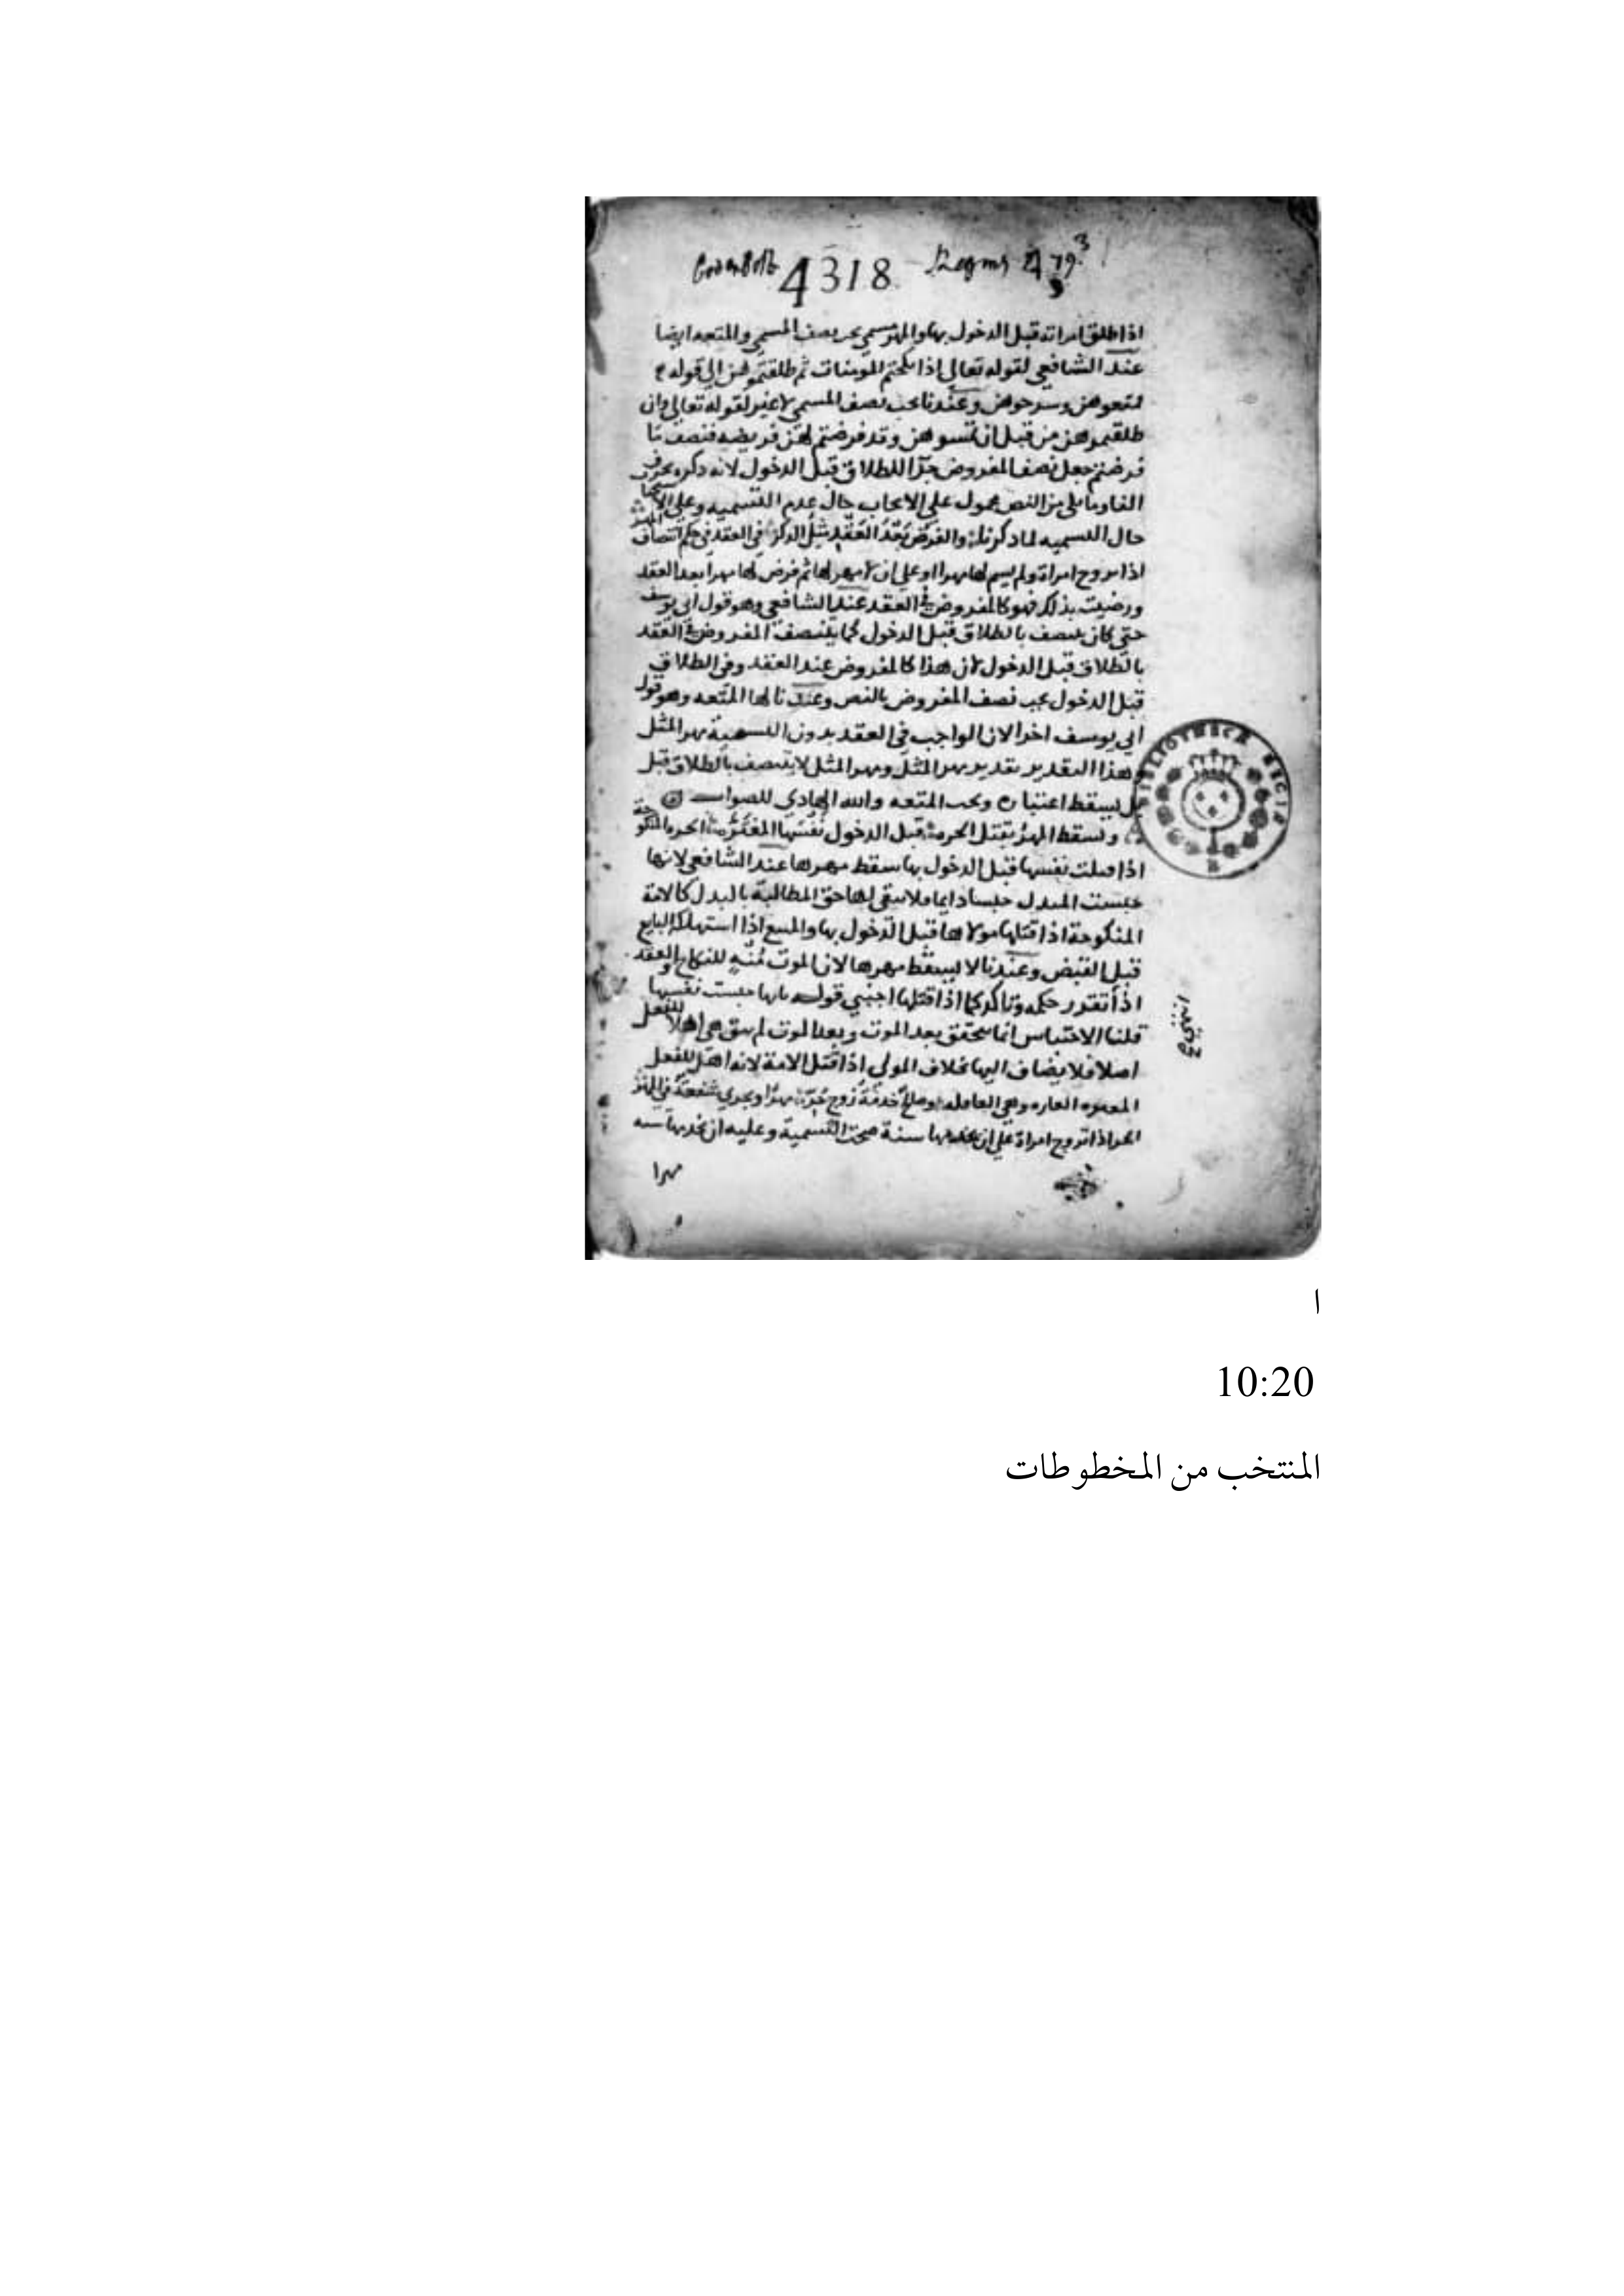 4318
اذا طلق امراته قبل الدخول بها والمهر مسمى نصف المسمى والمتعه ايضا
عند الشافعى لقوله تعالى اذا نكحتم المومنات ثم طلقتموهن الى قوله
فمتعوهن وسرحوهن وعندنا يجب نصف المسمى لا غير لقوله تعالى وان
طلقتموهن من قبل ان تمسوهن وقد فرضتم لهن فريضه فنصف ما
فرضتم جعل نصف المفروض جزآ للطلاق قبل الدخول لانه ذكره بحرف
الفا وما تلى من النص محمول على الايجاب حال عدم التسميه وعلى
حال التسميه لما ذكرنا والفرض بعد العقد مثل الذكر فى العقد فى حكم انتصاف
اذا تزوج امراة ولم يسم لها مهرا او على ان لا مهر لها ثم فرض لها مهرا بعد العقد
ورضيت بذلك فهو كالمفروض فى العقد عند الشافعى وهو قول ابى يوسف
حتى كان يتنصف بالطلاق قبل الدخول كما يتنصف المفروض فى العقد
بالطلاق قبل الدخول لان هذا كالمفروض عند العقد وفى الطلاق
قبل الدخول يجب نصف المفروض بالنص وعندنا لها المتعه وهو قول
ابى يوسف اخرا لان الواجب فى العقد بدون التسمية مهر المثل
وهذا التقدير تقدير مهر المثل ومهر المثل لا يتنصف بالطلاق قبل
بل يسقط اعتباره ويجب المتعه والله الهادى للصواب
ويسقط المهر بقتل الحرة قبل الدخول نفسها الحره المنكوحة
اذا قتلت نفسها قبل الدخول بها سقط مهرها عند الشافعى لانها
حبست المبدل حبسا دايما فلا يبقى لها حق المطالبة بالبدل كالامة
المنكوحة اذا قتلها مولاها قبل الدخول بها والمبيع اذا استهلكه البايع
قبل القبض وعندنا لا يسقط مهرها لان الموت منه للنكاح والعقد
اذا تقرر حكمه وتاكد كما اذا قتلها اجنبى قوله بانها حبست نفسها
قلنا الاحتباس انما يتحقق بعد الموت وبعد الموت لم تبق هى اهلا للفعل
اصلا فلا يضاف اليها بخلاف المولى اذا قتل الامة لانه اهل للفعل
وصلح خدمة زوج حر مهرا
الحر اذا تزوج امراة على ان يخدمها سنة صحت التسمية وعليه ان يخدمها سنه
مهرا
BIBLIOTHECA REGIA
ا
10:20
المنتخب من المخطوطات